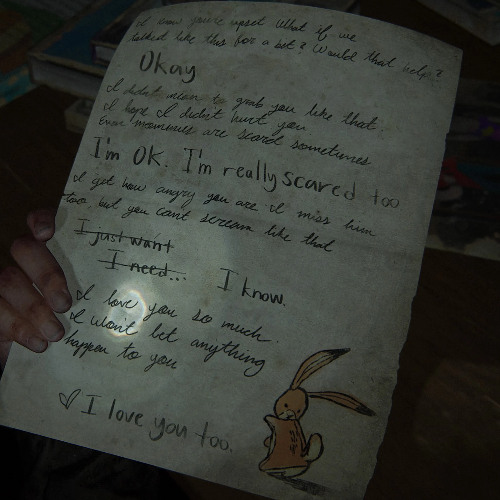 I know you're upset What if we
talked like this for a bit? Would that help?
Okay
I didn't mean to grab you like that.
I hope I didn't hurt you
Even mommies are scared sometimes
I'm OK. I'm really scared too
I get how angry you are I miss him
too but you can't scream like that
I just want
I need... I know.
I love you so much.
I won't let anything
happen to you
I love you too.